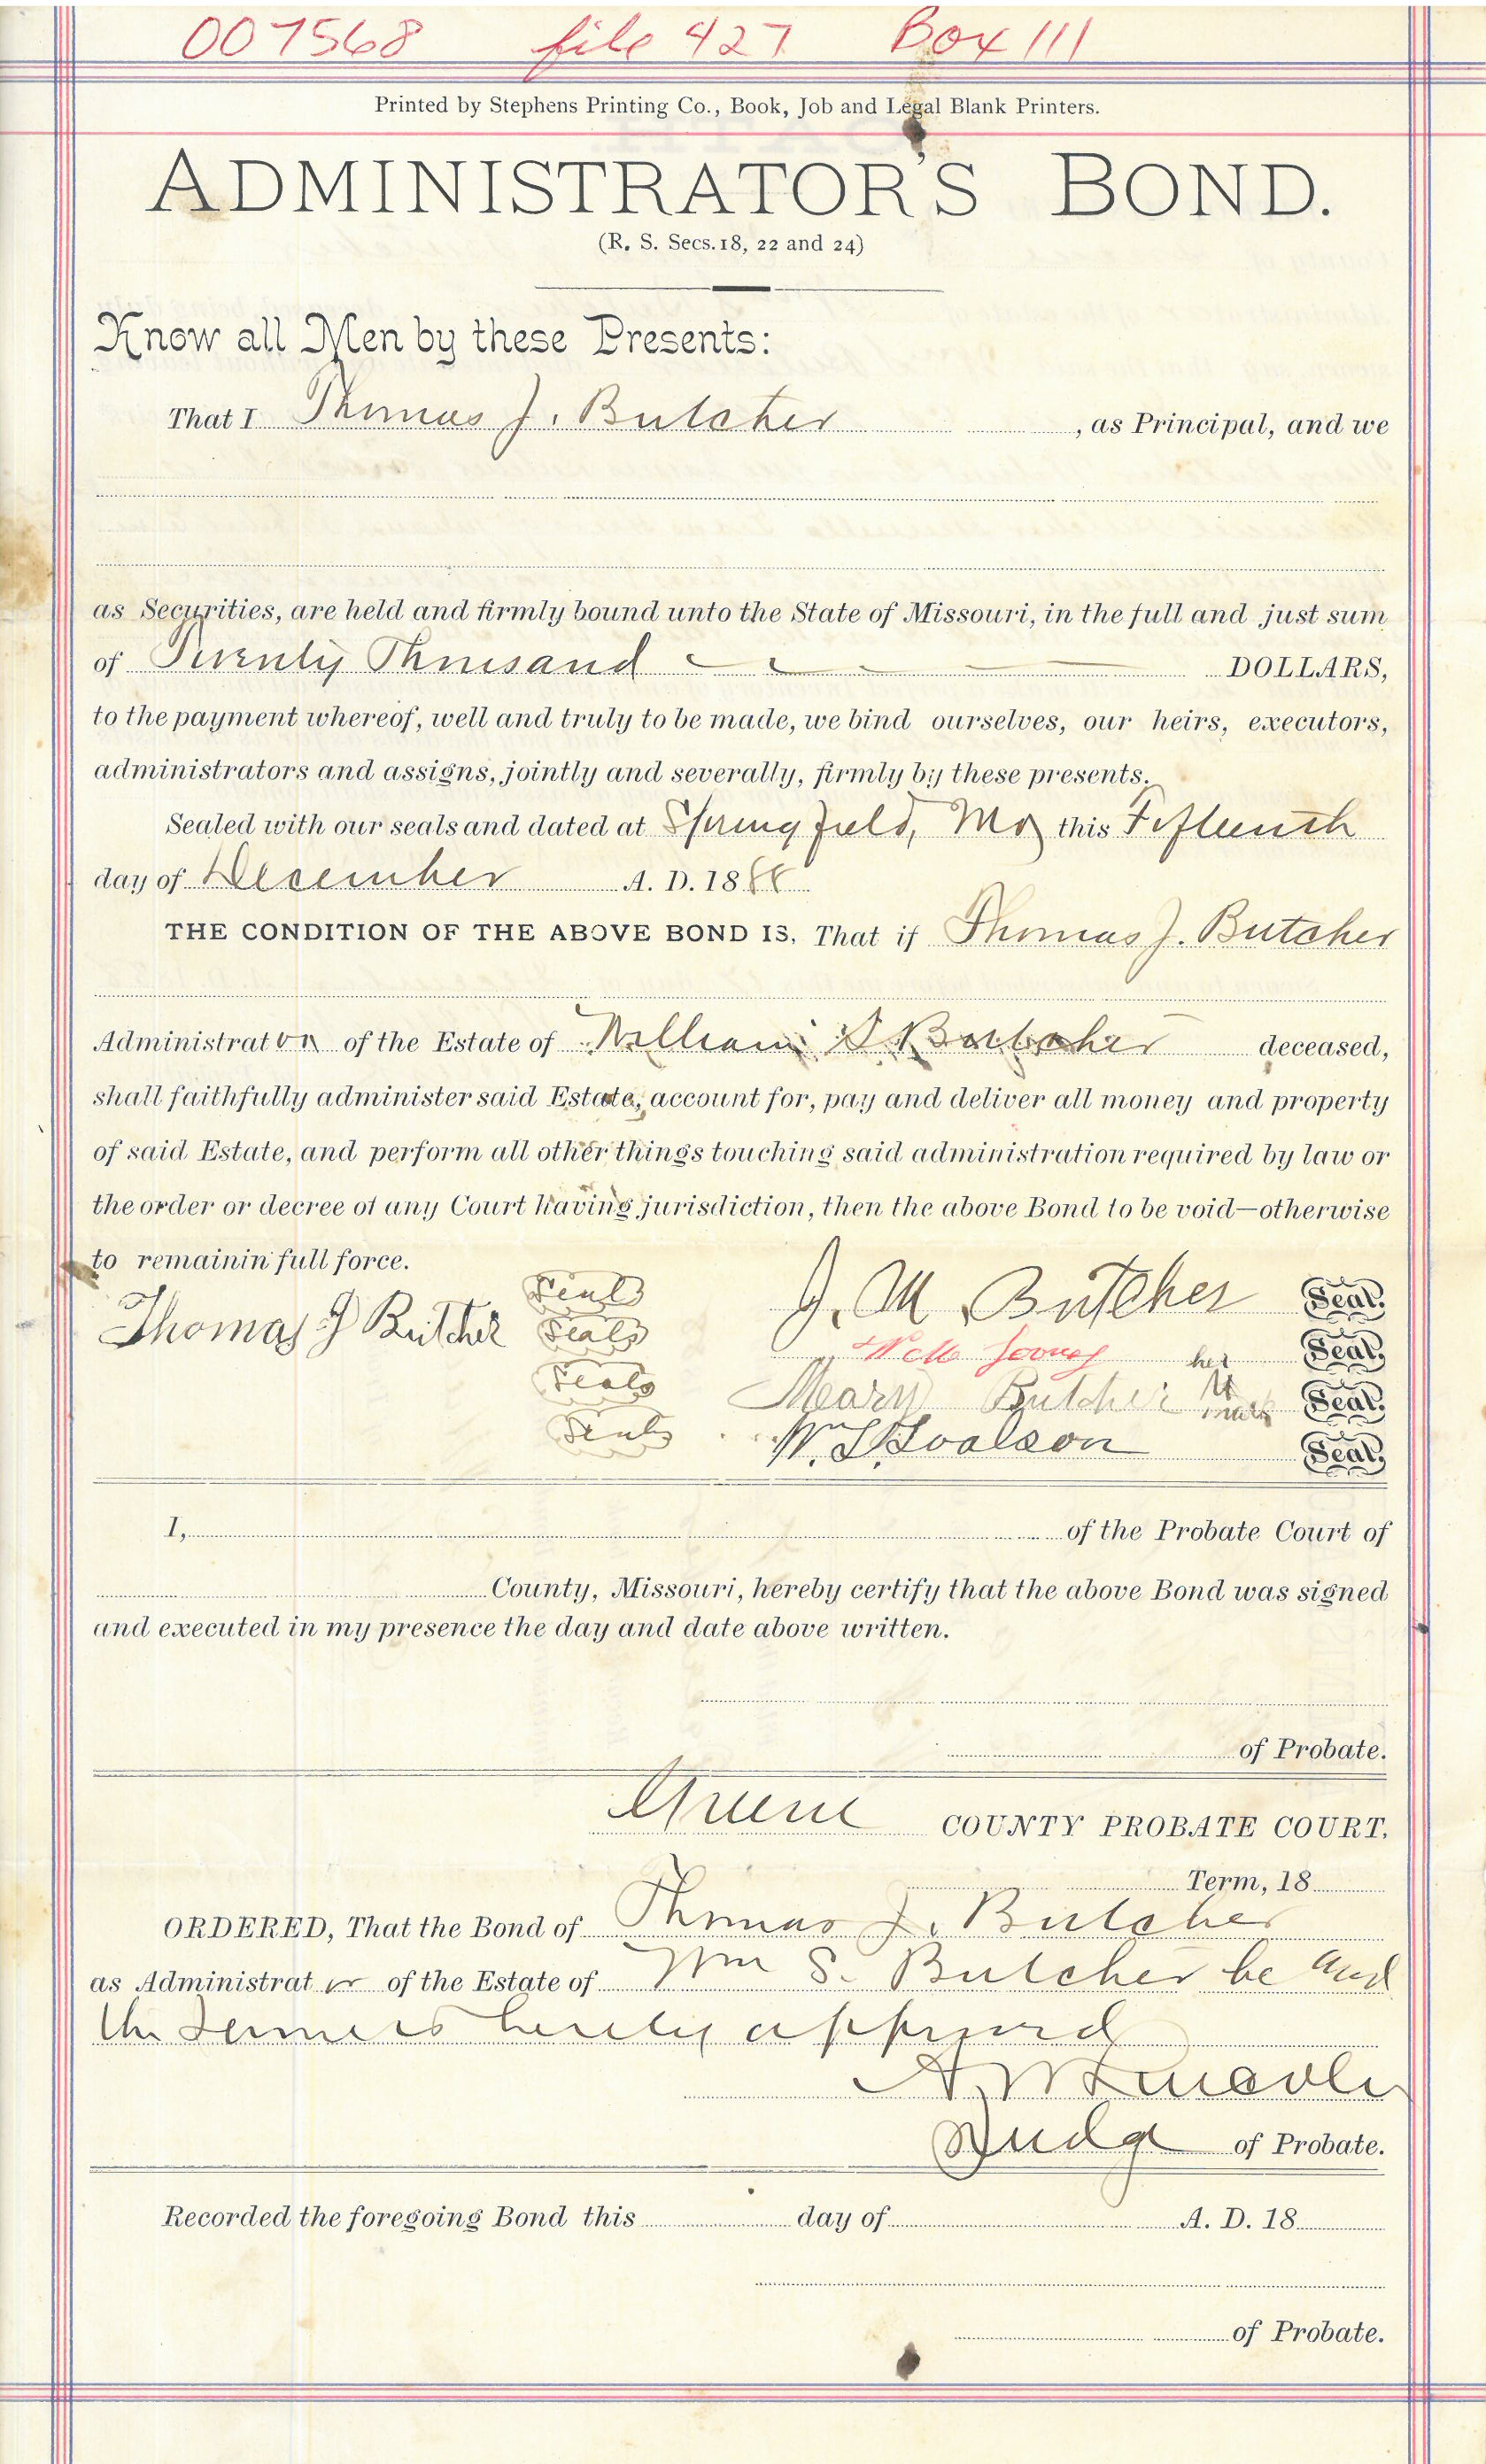 007568 file 427 Box 111
Printed by Stephens Printing Co., Book, Job and Legal Blank Printers.
ADMINISTRATOR'S BOND.
(R. S. Secs. 18, 22 and 24)
Know all Men by these Presents:
That I Thomas J. Butcher, as Principal, and we
as Securities, are held and firmly bound unto the State of Missouri, in the full and just sum
of Twenty Thousand DOLLARS,
to the payment whereof, well and truly to be made, we bind ourselves, our heirs, executors,
administrators and assigns, jointly and severally, firmly by these presents.
Sealed with our seals and dated at Springfield, Mo this Fifteenth
day of December A. D. 1888
THE CONDITION OF THE ABOVE BOND IS, That if Thomas J. Butcher
Administrator of the Estate of William S Butcher deceased,
shall faithfully administer said Estate, account for, pay and deliver all money and property
of said Estate, and perform all other things touching said administration required by law or
the order or decree of any Court having jurisdiction, then the above Bond to be void—otherwise
to remain in full force.
J. M Butcher Seal.
Thomas J Butcher Seal
Seal her Seal.
Seal Mary Butcher mark Seal.
Seal Seal.
I, of the Probate Court of
County, Missouri, hereby certify that the above Bond was signed
and executed in my presence the day and date above written.
of Probate.
Greene COUNTY PROBATE COURT.
Term, 18
ORDERED, That the Bond of Thomas J. Butcher
as Administrator of the Estate of Wm S. Butcher be and
the same is hereby approved
Judge of Probate.
Recorded the foregoing Bond this day of A. D. 18
of Probate.